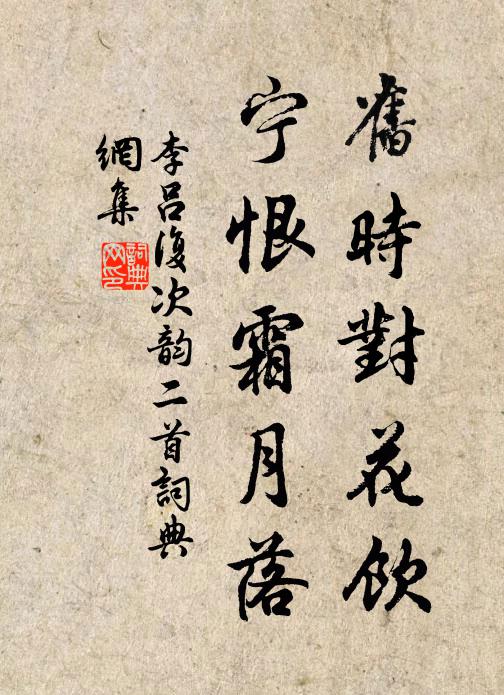 舊時對花飲
宁恨霜月落
李呂復次韵二首詞典
網集
詞典
网印